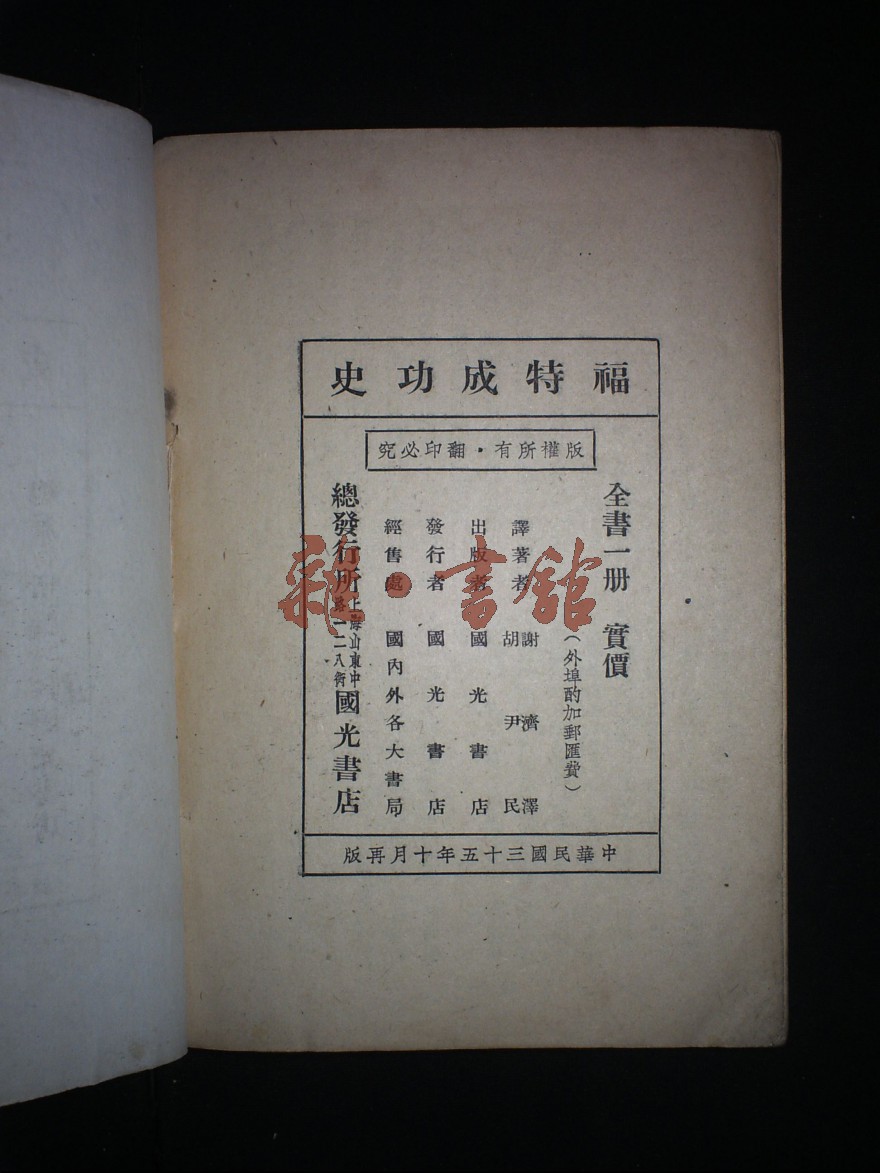 福特成功史
版權所有·翻印必究
全書一册 實價
(外埠酌加郵匯費)
譯著者 謝濟澤
胡尹民
出版者 國光書店
發行者 國光書店
經售處 國內外各大書局
總發行所 上海山東中路一二八衖 國光書店
中華民國三十五年十月再版
雜·書館